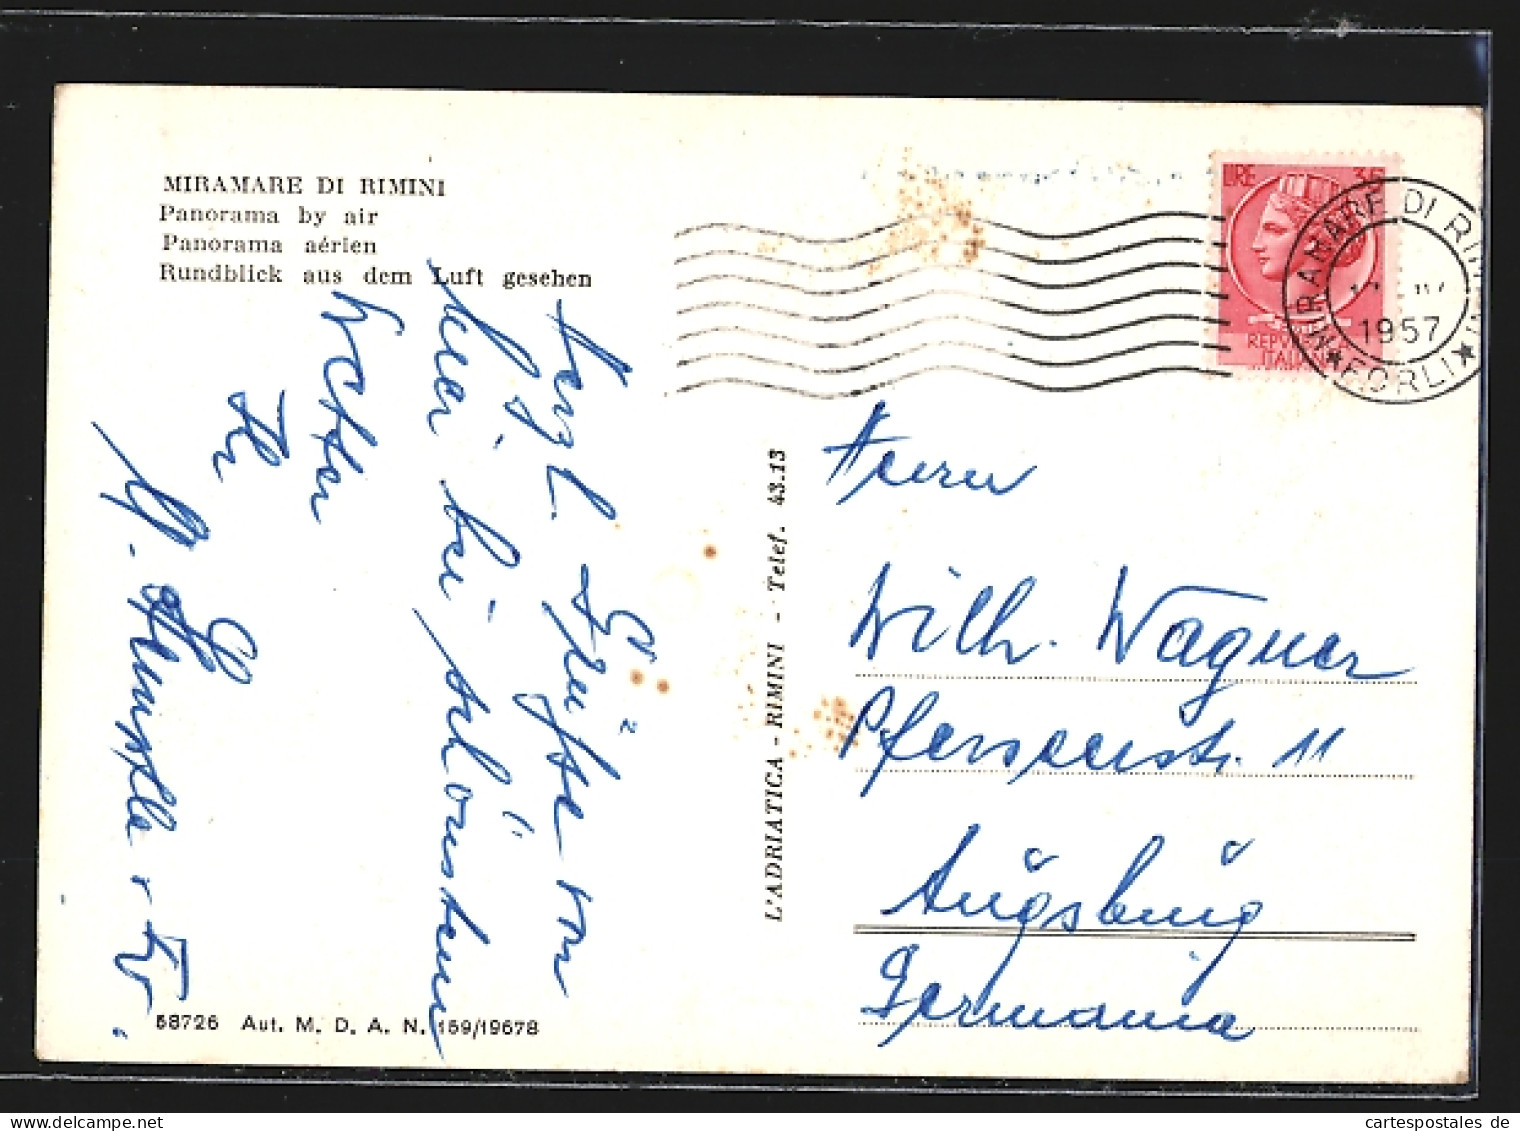 MIRAMARE DI RIMINI
Panorama by air
Panorama aérien
Rundblick aus dem Luft gesehen
Herzl. Grüße von
hier bei schönstem
Wetter
Ihr
58726 Aut. M. D. A. N. 159/19678
L'ADRIATICA - RIMINI - Telef. 43.13
LIRE 35
REPVBBLICA
ITALIANA
MIRAMARE DI RIMINI
1957
★ FORLI ★
Herrn
Wilh. Wagner
Pferseerstr. 11
Augsburg
Germania
cartespostales de